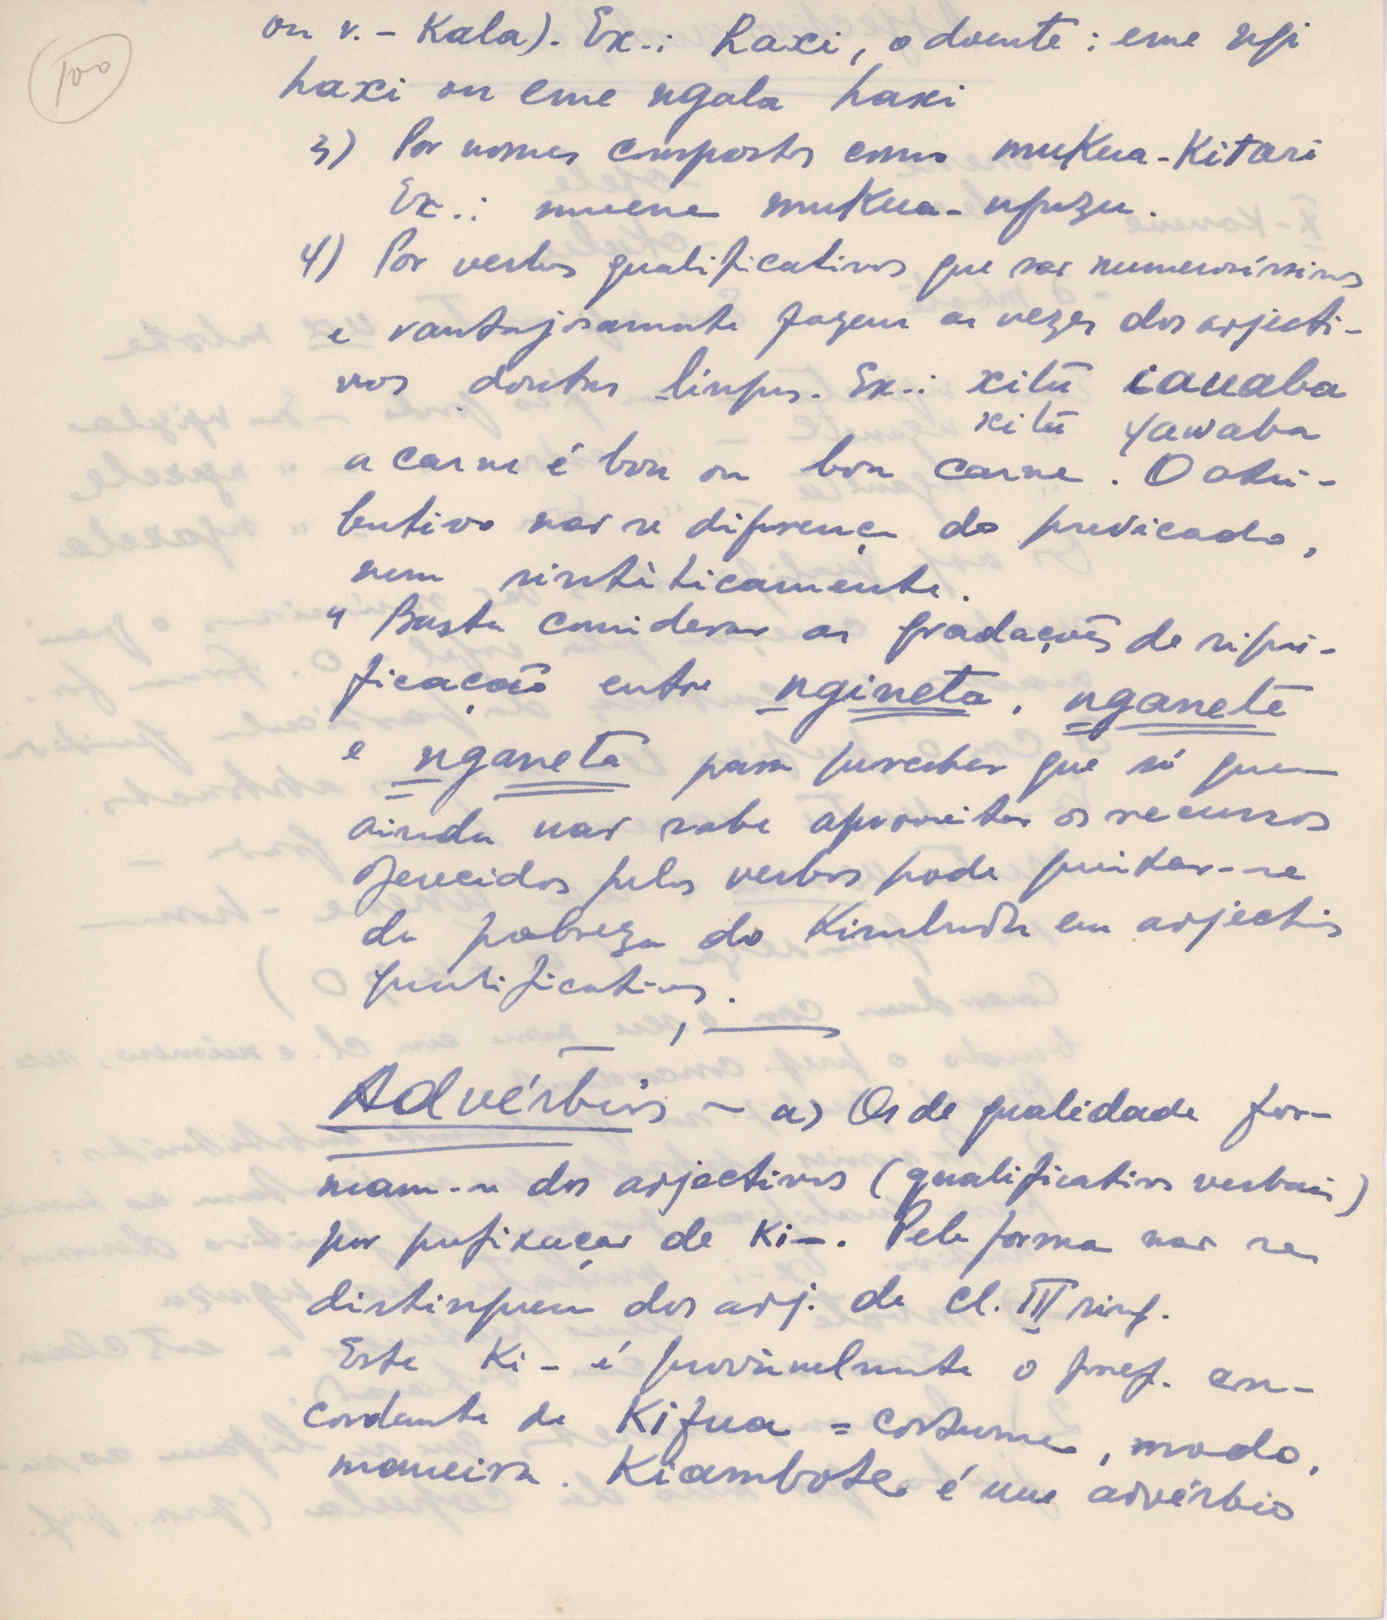 100
ou v. - Kala). Ex.: haxi, o doente: eme ngi
haxi ou eme ngala haxi
3) Por nomes compostos como mukua-Kitari
Ex.: muene mukua-nguzu.
4) Por verbos qualificativos que são numerosíssimos
e vantajosamente fazem as vezes dos adjecti-
vos doutras línguas. Ex.: xitū iauaba
xitū yawaba
a carne é boa ou boa carne. O atri-
butivo não se diferença do predicado,
nem sintèticamente.
" Basta considerar as gradações de signi-
ficação entre ngineta, nganetē
e nganetā para perceber que só quem
ainda não sabe aproveitar os recursos
oferecidos pelos verbos pode queixar-se
da pobreza do Kimbundu em adjectivos
qualificativos.
Advérbios - a) Os de qualidade for-
mam-se dos adjectivos (qualificativos verbais)
por prefixação de Ki-. Pela forma não se
distinguem dos adj. da cl. III sing.
Este Ki- é provàvelmente o pref. con-
cordante de Kifua = costume, modo,
maneira. Kiambote é um advérbio